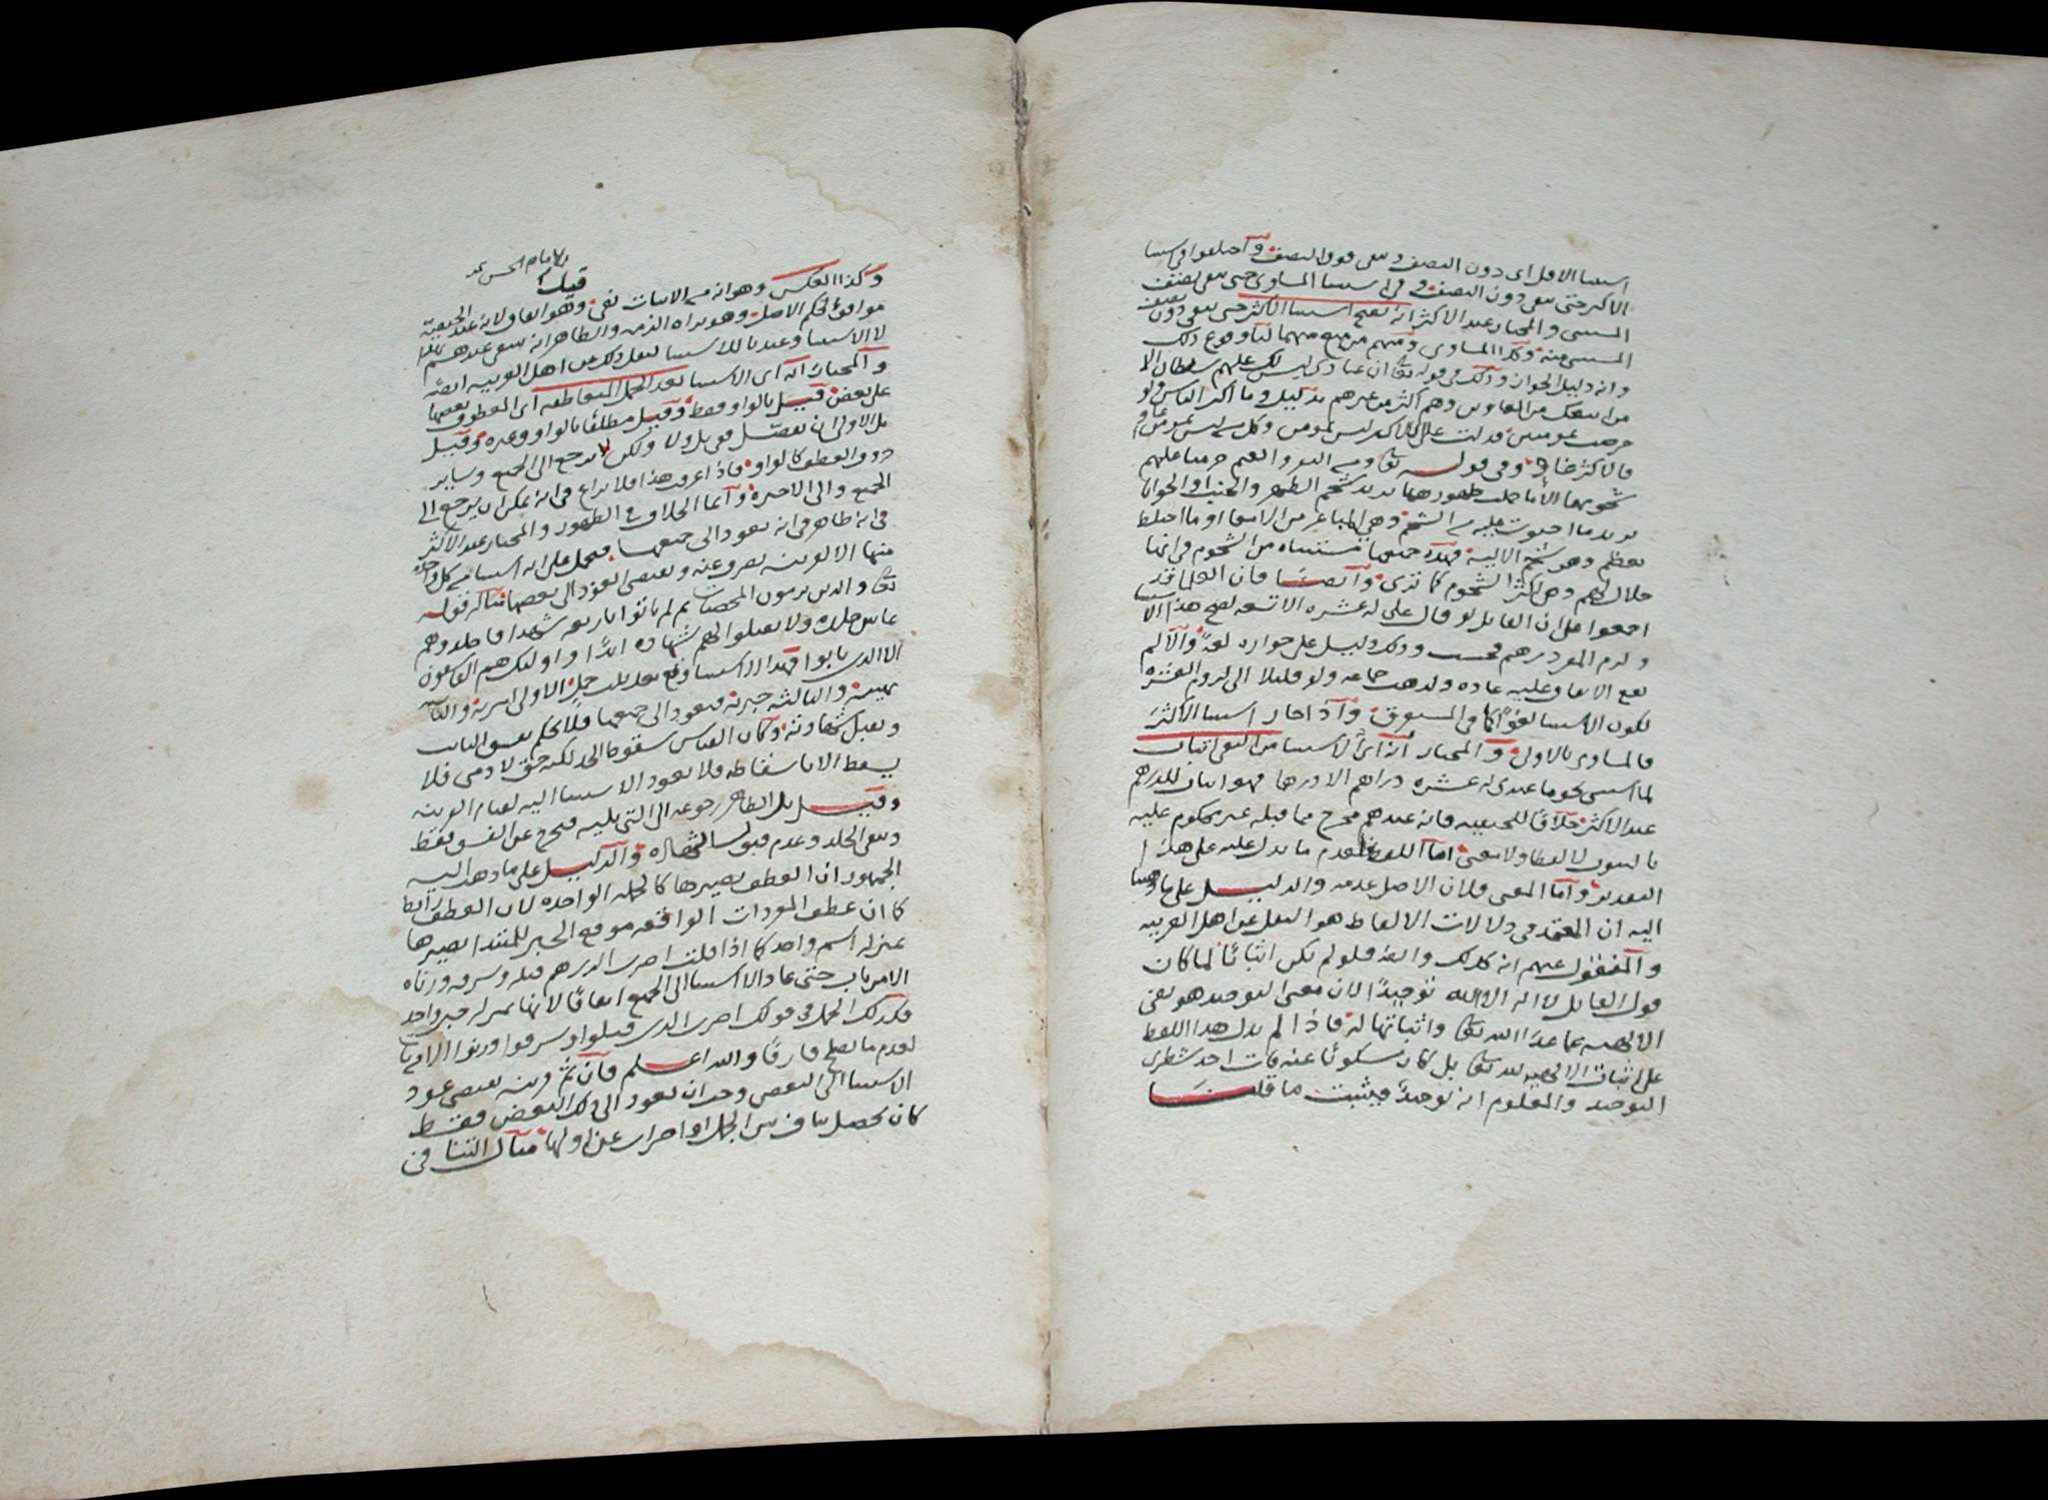 استثنا الاقل اى دون النصف وىبقى فوق النصف واختلفوا فى استثنا
الاكثر حتى يبقى دون النصف وفى استثنا المساوى حتى يبقى نصف
المستثنى والمختار عند الاكثر انه يصح استثنا الاكثر حتى يبقى دون نصف
المستثنى منه وكذا المساوى ومنهم من منع منهما لنا وقوع ذلك
وانه دليل الجواز وذلك فى قوله تعالى ان عبادى ليس لك عليهم سلطان الا
من اتبعك من الغاوين وهم اكثر من غيرهم بدليل وما اكثر الناس ولو
حرصت بمومنين فدلت على ان الاكثر ليس بمومن وكل من ليس بمومن غاو
فالاكثر غاو وفى قوله تعالى ومن البقر والغنم حرمنا عليهم
شحومهما الا ما حملت ظهورهما يريد شحم الظهر والجنب او الحوايا
يريد ما احتوت عليه من الشحم وهى المباعر من الامعا او ما اختلط
بعظم وهو شحم الالية فهذه جميعها مستثناه من الشحوم فى انها
حلال لهم وهى اكثر الشحوم كما ترى وايضًا فان العلما قد
اجمعوا على ان القايل لو قال على له عشره الا تسعه يصح هذا الاستثنا
ولزم المقر درهم فحسب وذلك دليل على جوازه لغةً والا لم
يقع الاتفاق عليه عاده ولذهب جماعه ولو قليلا الى لزوم العشره
لكون الاستثنا لغوًا كما فى المستغرق واذا جاز استثنا الاكثر
فالمساوى بالاولى والمختار انه اى الاستثنا من النفى اثبات
لما استثنى نحو ما عندى له عشره دراهم الا درهما فهو اثبات للدرهم
عند الاكثر خلافًا للحنفيه فانه عندهم مخرج مما قبله غير محكوم عليه
بالثبوت لا لفظا ولا معنى اما اللفظ فلعدم ما يدل عليه على هذا
التقدير واما المعنى فلان الاصل عدمه والدليل على ما ذهبنا
اليه ان المعتمد فى دلالات الالفاظ هو النقل عن اهل العربيه
والمنقول عنهم انه كذلك وايضا فلو لم يكن اثباتًا لما كان
قول القايل لا اله الا الله توحيدًا لان معنى التوحيد هو نفى
الالهيه عما عدا الله تعالى واثباتها له فاذا لم يدل هذا اللفظ
على اثبات الالهيه لله تعالى بل كان مسكوتًا عنه فات احد شطرى
التوحيد والمعلوم انه توحيد فيثبت ما قلنا
الامام الحسن
قيل
وكذا العكس وهو انه من الاثبات نفى وهو اتفاق لانه عند الحنفيه
موافق لحكم الاصل وهو براه الذمه والظاهر انه نفى عندهم
لا الاستثنا وعندنا للاستثنا لنقل ذلك عن اهل العربيه ايضًا
والمختار انه اى الاستثنا بعد الجمل المتعاطفه اى المعطوف بعضها
على بعض قيل بالواو فقط وقيل مطلقًا بالواو وغيره وقيل
بل الاولى ان يفصّل فى بل ولا ولكن لا يرجع الى الجميع وساير
حروف العطف كالواو فاذا عرفت هذا فلا نزاع فى انه يمكن ان يرجع الى
الجميع والى الاخيره وانما الخلاف فى الظهور والمختار عند الاكثر
فى انه ظاهر فى انه يعود الى جميعها فيحمل على انه استثنا من كل واحده
منها الا لقرينه تصرف عنه وتقتضى العود الى بعضها مثاله قوله
تعالى والذين يرمون المحصنات ثم لم ياتوا باربعه شهدا فاجلدوهم
ثمانين جلده ولا تقبلوا لهم شهاده ابدًا واوليك هم الفاسقون
الا الذين تابوا فهذا الاستثنا وقع بعد ثلث جمل الاولى امرية والثانيه
نهييه والثالثه خبريه فيعود الى جميعها فلا يحكم بفسق التايب
وتقبل شهادته وكان القياس سقوط الحد لكنه حق لادمى فلا
يسقط الا باسقاطه فلا يعود الاستثنا اليه لقيام القرينه
وقيل بل الظاهر رجوعه الى التى يليه فيخرج عن الفسق فقط
وبقى الجلد وعدم قبول الشهاده والدليل على ما ذهب اليه
الجمهور ان العطف يصيرها كالجمله الواحده لان العطف رابط
كما ان عطف المفردات الواقعه موقع الخبر للمبتدا يصيرها
بمنزله اسم واحد كما اذا قلت اضرب الذى هم قتله وسرقه وزناه
الا من تاب حتى عاد الاستثنا الى الجميع اتفاقًا لانها بمنزله خبر واحد
فكذلك الجمل فى قولك اضرب الذين قتلوا وسرقوا وزنوا الا من تاب
لعدم ما يصلح فارقًا والله اعلم فان ثم قرينه تقتضى عود
الاستثنا الى البعض وجب ان يعود الى ذلك البعض فقط
كان يحصل تناف بين الجمل او اضراب عن اولها مثال التنافى